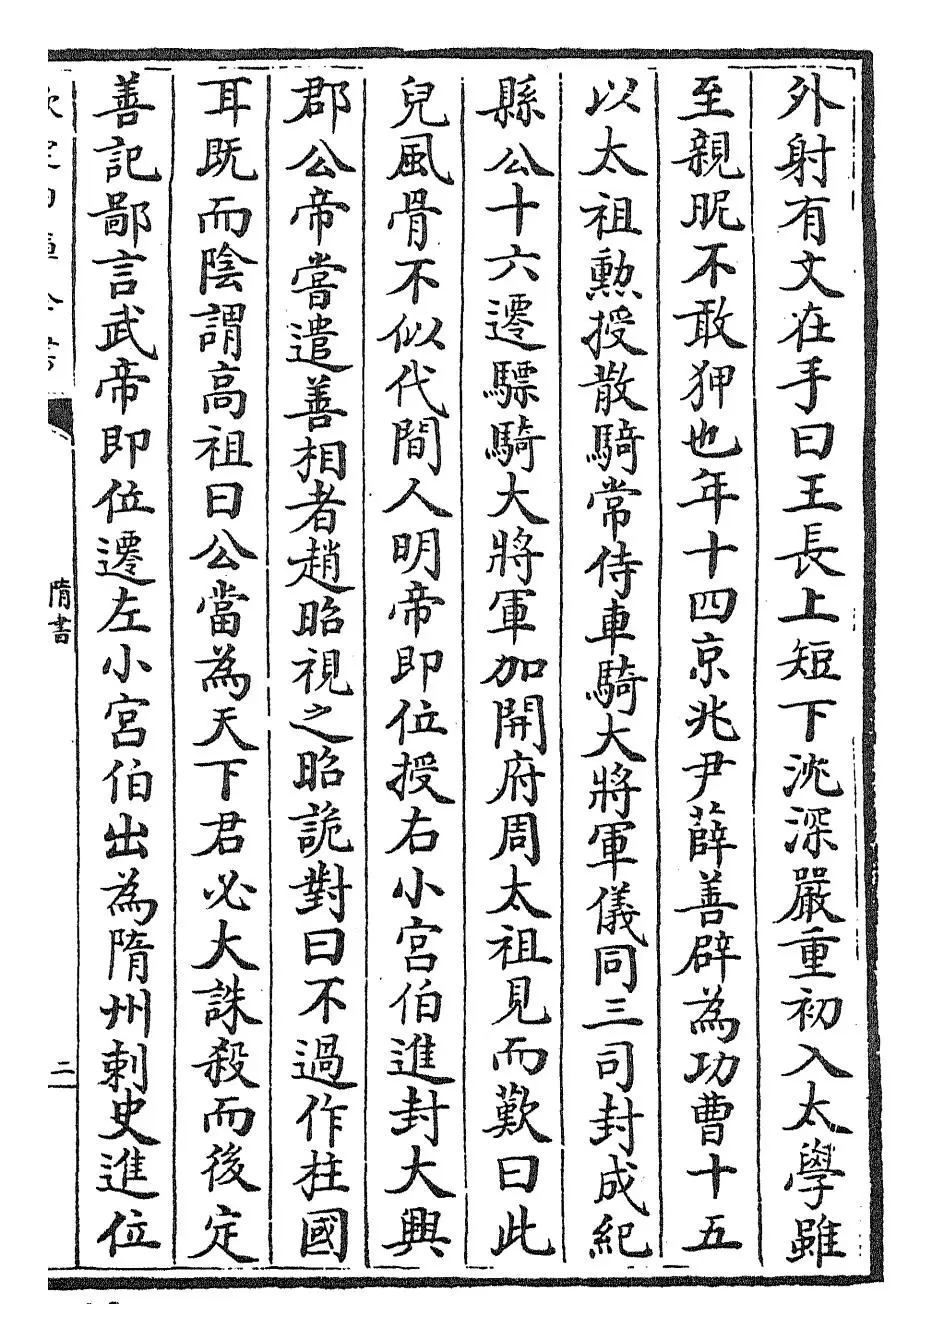 外射有文在手曰王長上短下沈深嚴重初入太學雖
至親昵不敢狎也年十四京兆尹薛善辟為功曹十五
以太祖勲授散騎常侍車騎大將軍儀同三司封成紀
縣公十六遷驃騎大將軍加開府周太祖見而歎曰此
兒風骨不似代間人明帝即位授右小宮伯進封大興
郡公帝嘗遣善相者趙昭視之昭詭對曰不過作柱國
耳既而陰謂高祖曰公當為天下君必大誅殺而後定
善記鄙言武帝即位遷左小宮伯出為隋州刺史進位
隋書
三